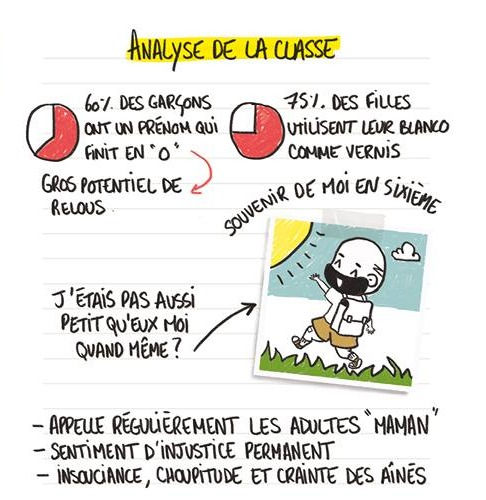 ANALYSE DE LA CLASSE
60% DES GARÇONS
ONT UN PRÉNOM QUI
FINIT EN "O"
GROS POTENTIEL DE
RELOUS.
75% DES FILLES
UTILISENT LEUR BLANCO
COMME VERNIS
SOUVENIR DE MOI EN SIXIÈME
J'ÉTAIS PAS AUSSI
PETIT QU'EUX MOI
QUAND MÊME?
- APPELLE RÉGULIÈREMENT LES ADULTES "MAMAN"
- SENTIMENT D'INJUSTICE PERMANENT
- INSOUCIANCE, CHOUPITUDE ET CRAINTE DES AÎNÉS